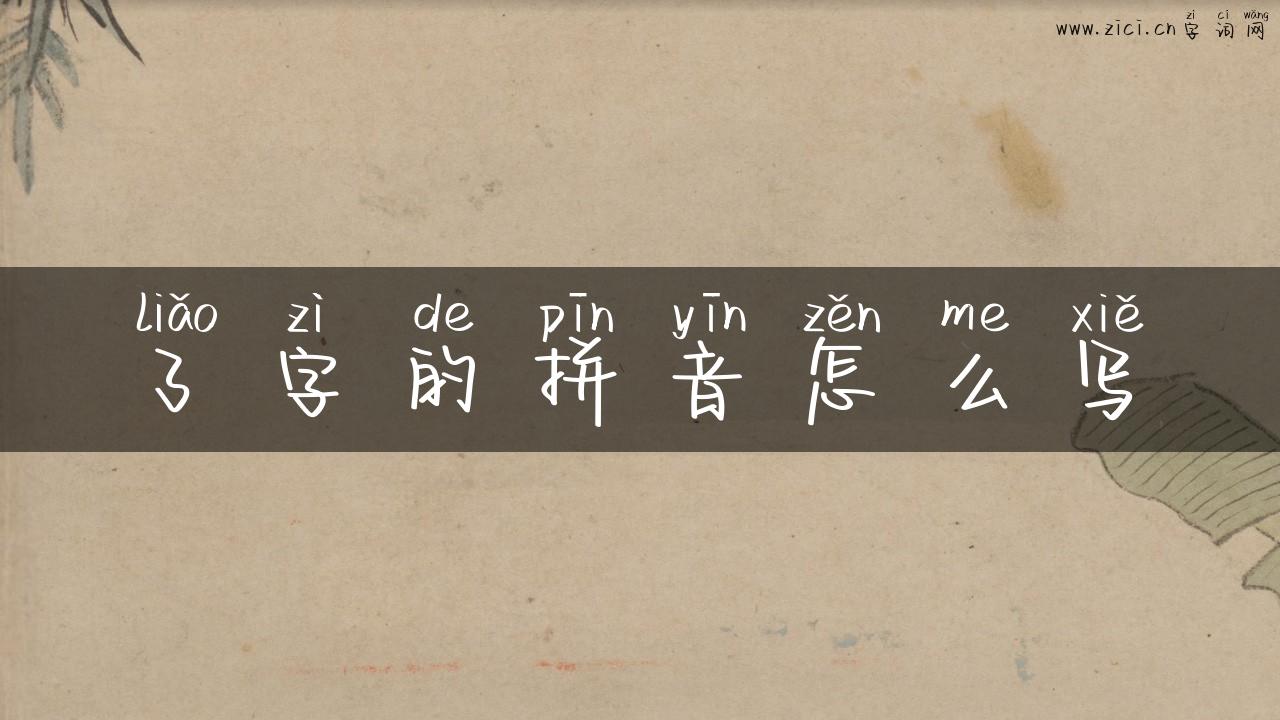 zì cí wǎng
www.zici.cn 字 词 网
liǎo zì de pīn yīn zěn me xiě
了 字 的 拼 音 怎 么 写